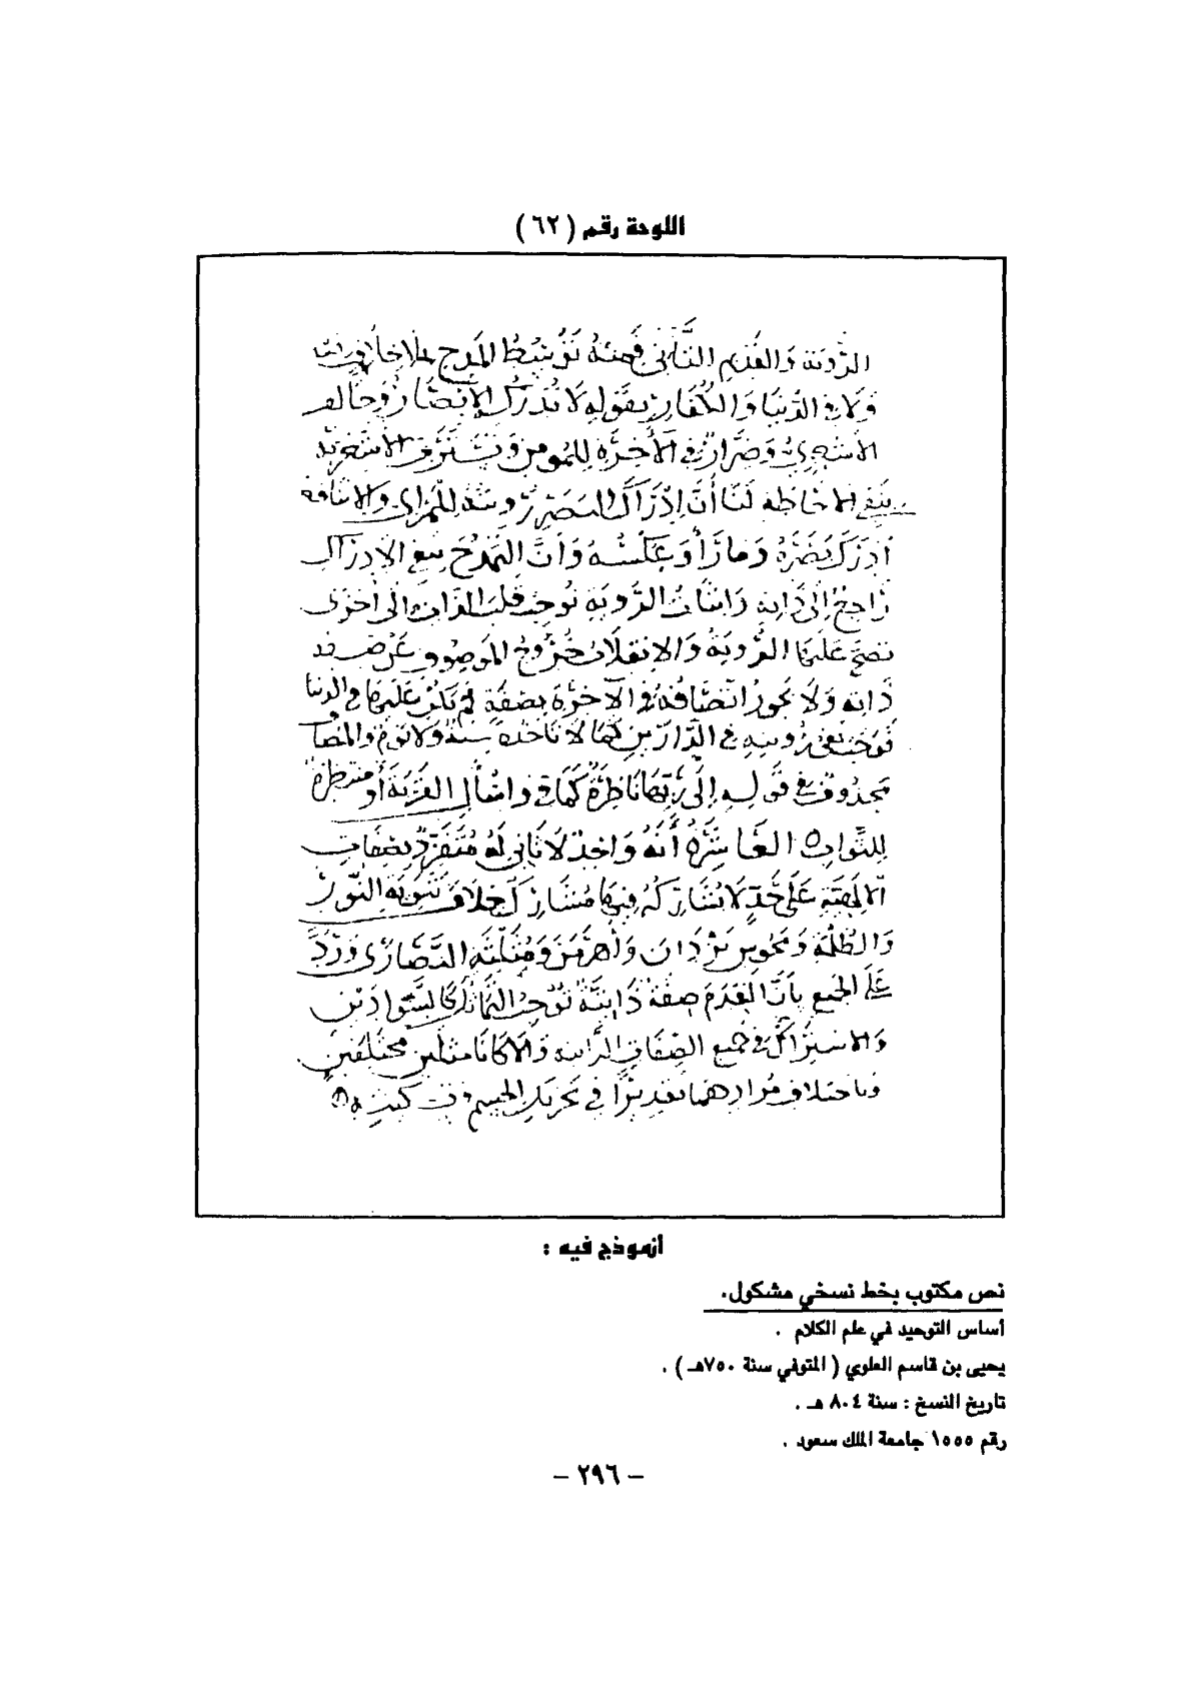 اللوحة رقم ( ٦٢ )
الرُّويَة وَالقَدِيمِ الثَّانِي
وَلَا فِي الدُّنيَا وَالكُفَّارِ بِقَولِهِ لَا تُدْرِكُهُ الْأَبْصَارُ
الأشعَرِيُّ وَضِرَارٌ فِي الْآخِرَةِ لِلمُومِنِ
بِنَفي الإحَاطَةِ لَنَا أَنَّ إِدْرَاكَ البَصَرِ رُويَتُهُ لِلمَرَاي وَالا نَاقَضَ
أَدرَكَ بَصَرُهُ وَمَا رَأَى وَعَكْسُهُ وَأَنَّ التَّمَدُّحَ بِنَفي الإدرَاكِ
رَاجِعٌ إِلَى ذَاتِهِ وَإِثبَاتُ الرُّويَةِ يُوجِبُ قَلبَ الذَّاتِ إِلَى أُخرَى
تَصِحُّ عَلَيهَا الرُّويَةُ وَالإنقِلَابُ خُرُوجُ المَوصُوفِ عَن صِفَة
ذَاتِهِ وَلَا يَجُوزُ اتِّصَافُهُ فِي الآخِرَةِ بِصِفَةٍ لَم تَكُن عَلَيهَا فِي الدُّنيَا
فَوَجَبَ نَفي رُويَتِهِ فِي الدَّارَينِ كَمَا لَا تَأخُذُهُ سِنَةٌ وَلَا نَومٌ وَالمُضَافُ
مَحذُوفٌ فِي قَولِهِ إِلَى رَبِّهَا نَاظِرَةٌ كَمَا فِي وَاسْأَلِ القَرْيَةَ أَو مُنتَظِرَة
لِلثَّوَابِ العَاشِرَةُ أَنَّهُ وَاحِدٌ لَا ثَانِي لَهُ مُتَفَرِّدٌ بِصِفَاتِ
الإلَهِيَّةِ عَلَى حَدٍّ لَا يُشَارِكُهُ فِيهَا مُشَارِكٌ خِلَافَ ثَنَوِيَّةِ النُّورِ
وَالظُّلمَةِ وَمَجُوسِ يَزْدَانَ وَأَهرَمَن وَمُثَلِّثَةِ النَّصَارَى وَرُدَّ
عَلَى الجَمِيعِ بِأَنَّ القِدَمَ صِفَةٌ ذَاتِيَّةٌ تُوجِبُ التَّمَاثُلَ كَالسَّوَادَينِ
وَالاشتِرَاكَ فِي جَمِيعِ الصِّفَاتِ الذَّاتِيَّةِ وَإلَّا كَانَا مِثلَينِ مُختَلِفَينِ
وَبِاختِلَافِ مُرَادِهِمَا تَقدِيرًا فِي تَحرِيكِ الجِسمِ
أنموذج فيه :
نص مكتوب بخط نسخي مشكول.
أساس التوحيد في علم الكلام .
يحيى بن قاسم العلوي ( المتوفي سنة ٧٥٠هـ ) .
تاريخ النسخ : سنة ٨٠٤ هـ .
رقم ١٥٥٥ جامعة الملك سعود .
– ٢٩٦ –